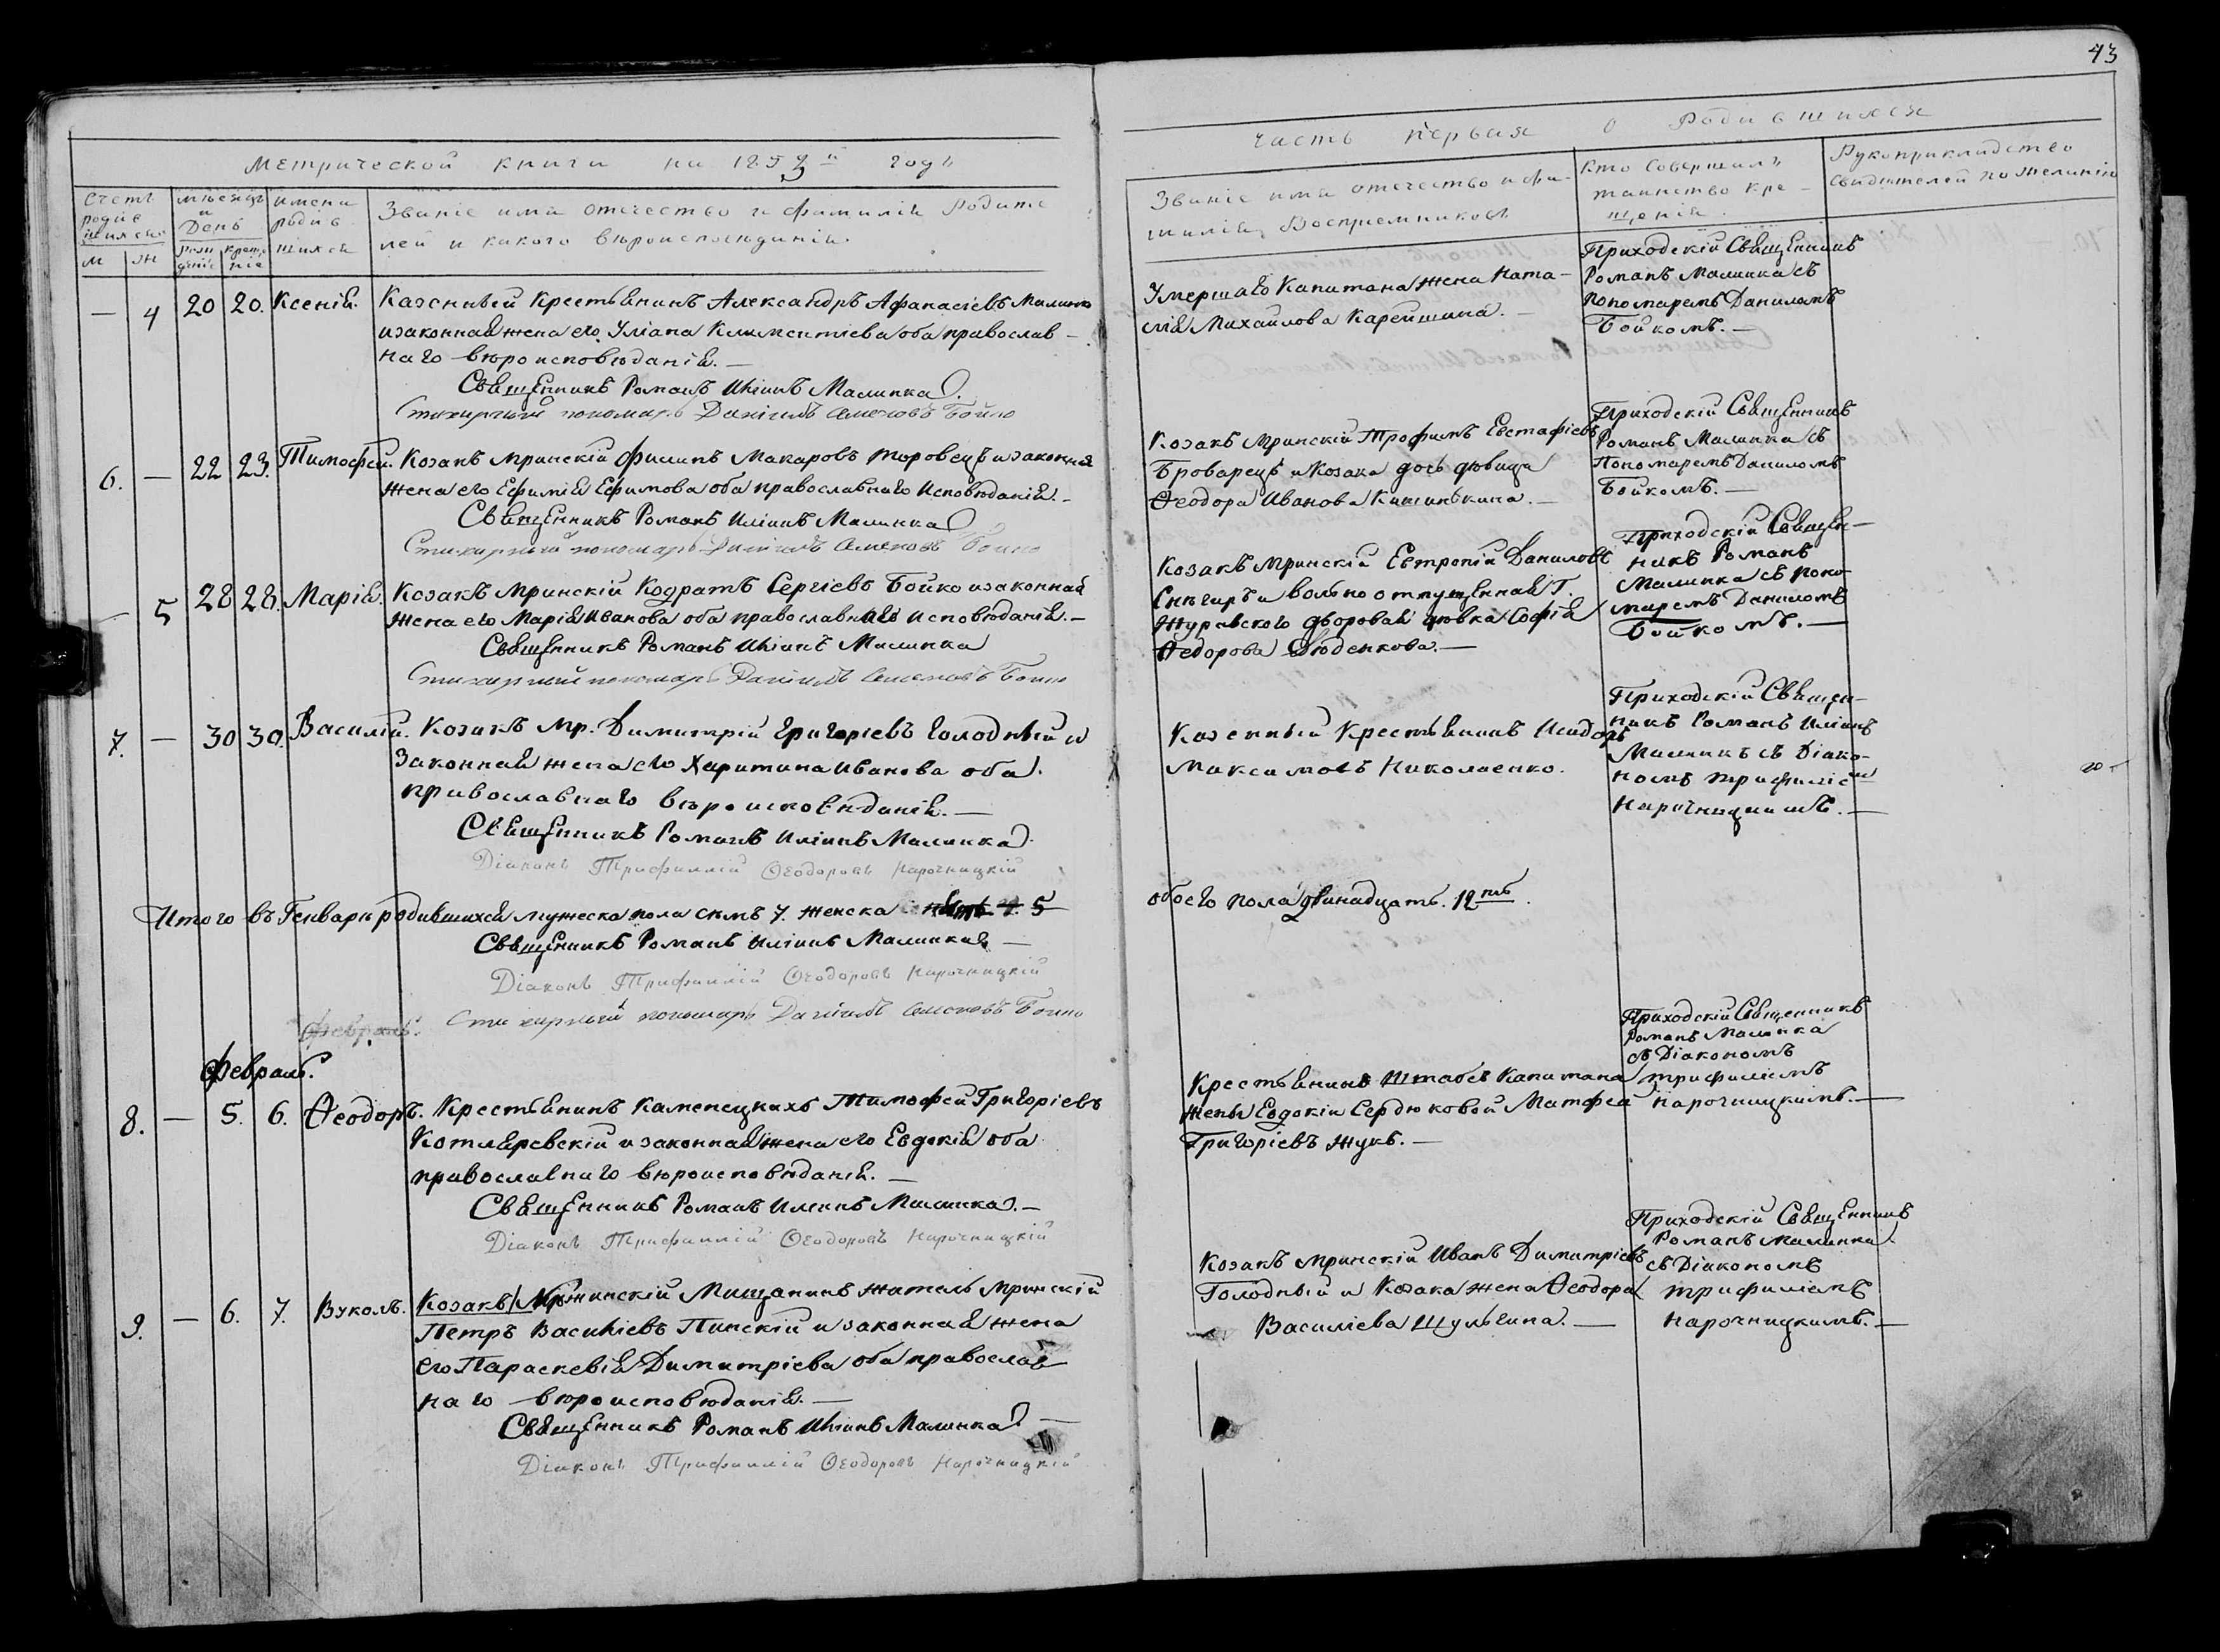 43
Метрической книги на 1853 й годъ
Счетъ родив шихся
М Ж
мѣсяцъ и День
рож деніе креще ніе
имена родив шихся
Званіе имя отечество и фамилія Родите
лей и какого вѣроисповѣданія.
Часть первая о Родившихся
Званіе имя отечество и фа-
милія Воспріемниковъ
Кто совершалъ
таинство кре-
щенія.
Рукоприкладство
свидѣтелей по желанію
— 4 20 20. Ксенія. Казенный Крестьянинъ Александръ Афанасіевъ Малинко
и законная жена его Уліана Климентіева оба православ-
наго вѣроисповѣданія. —
Священникъ Романъ Иліинъ Малинка
Стихирный пономарь Даніилъ Семеновъ Бойко
Умершаго Капитана жена Ната-
лія Михайлова Карейшина. —
Приходскій Священникъ
Романъ Малинка съ
Пономаремъ Даниломъ
Бойкомъ. —
6. — 22 23. Тимофей. Козакъ мринскій Филипъ Макаровъ Торовецъ и законная
жена его Ефимія Ефимова оба православнаго Исповѣданія. —
Священникъ Романъ Иліинъ Малинка
Стихирный пономарь Даніилъ Семеновъ Бойко
Козакъ мринскій Трофимъ Евстафіевъ
Броварецъ и Козака дочь дѣвица
Ѳеодора Иванова Кишинькина. —
Приходскій Священникъ
Романъ Малинка съ
Пономаремъ Даниломъ
Бойкомъ. —
— 5 28 28. Марія. Козакъ мринскій Кодратъ Сергіевъ Бойко и законная
жена его Марія Иванова оба православнаго исповѣданія. —
Священникъ Романъ Иліинъ Малинка
Стихирный пономарь Даніилъ Семеновъ Бойко
Козакъ мринскій Евтропій Даниловъ
Снѣгиръ и вольноотпущенная Г.
Журавского дворовая дѣвка Софія
Ѳедорова Дюденкова. —
Приходскій Священ-
никъ Романъ
Малинка съ поно-
маремъ Даниломъ
Бойкомъ. —
7. — 30 30. Василій. Козакъ мр. Димитрій Григоріевъ Голодный и
Законная жена его Харитина Иванова оба
православнаго вѣроисповѣданія. —
Священникъ Романъ Иліинъ Малинка
Діаконъ Трифиллій Ѳеодоровъ Нарочницкій
Казенный Крестьянинъ Исидоръ
Максимовъ Николаенко.
Приходскій Священ-
никъ Романъ Иліинъ
Малинкъ съ Діако-
номъ Трифиліемъ
Нарочницкимъ. —
Итого въ Генварѣ родившихся мужеска пола семъ 7. женска 5
обоего пола дванадцать. 12ть.
Священникъ Романъ Иліинъ Малинка —
Діаконъ Трифиллій Ѳеодоровъ Нарочницкій
Стихирный пономарь Даніилъ Семеновъ Бойко
Февраль.
Февраль.
8. — 5. 6. Ѳеодоръ. Крестьянинъ Каменецкихъ Тимофей Григоріевъ
Котляревскій и законная жена его Евдокія оба
православнаго вѣроисповѣданія. —
Священникъ Романъ Иліинъ Малинка. —
Діаконъ Трифиллій Ѳеодоровъ Нарочницкій
Крестьянинъ Штабсъ Капитана
жены Евдокіи Сердюковой Матфей
Григоріевъ Жукъ. —
Приходскій Священникъ
Романъ Малинка
съ Діакономъ
Трифиліемъ
Нарочницкимъ. —
9. — 6. 7. Вуколъ. Козакъ Мѣщанинъ житель мринскій
Петръ Василіевъ Пинскій и законная жена
его Параскевія Димитріева оба православ
наго вѣроисповѣданія. —
Священникъ Романъ Иліинъ Малинка —
Діаконъ Трифиллій Ѳеодоровъ Нарочницкій
Козакъ мринскій Иванъ Димитріевъ
Голодный и Козака жена Ѳеодора
Василіева Шульгина. —
Приходскій Священникъ
Романъ Малинка
съ Діакономъ
Трифиліемъ
Нарочницкимъ. —